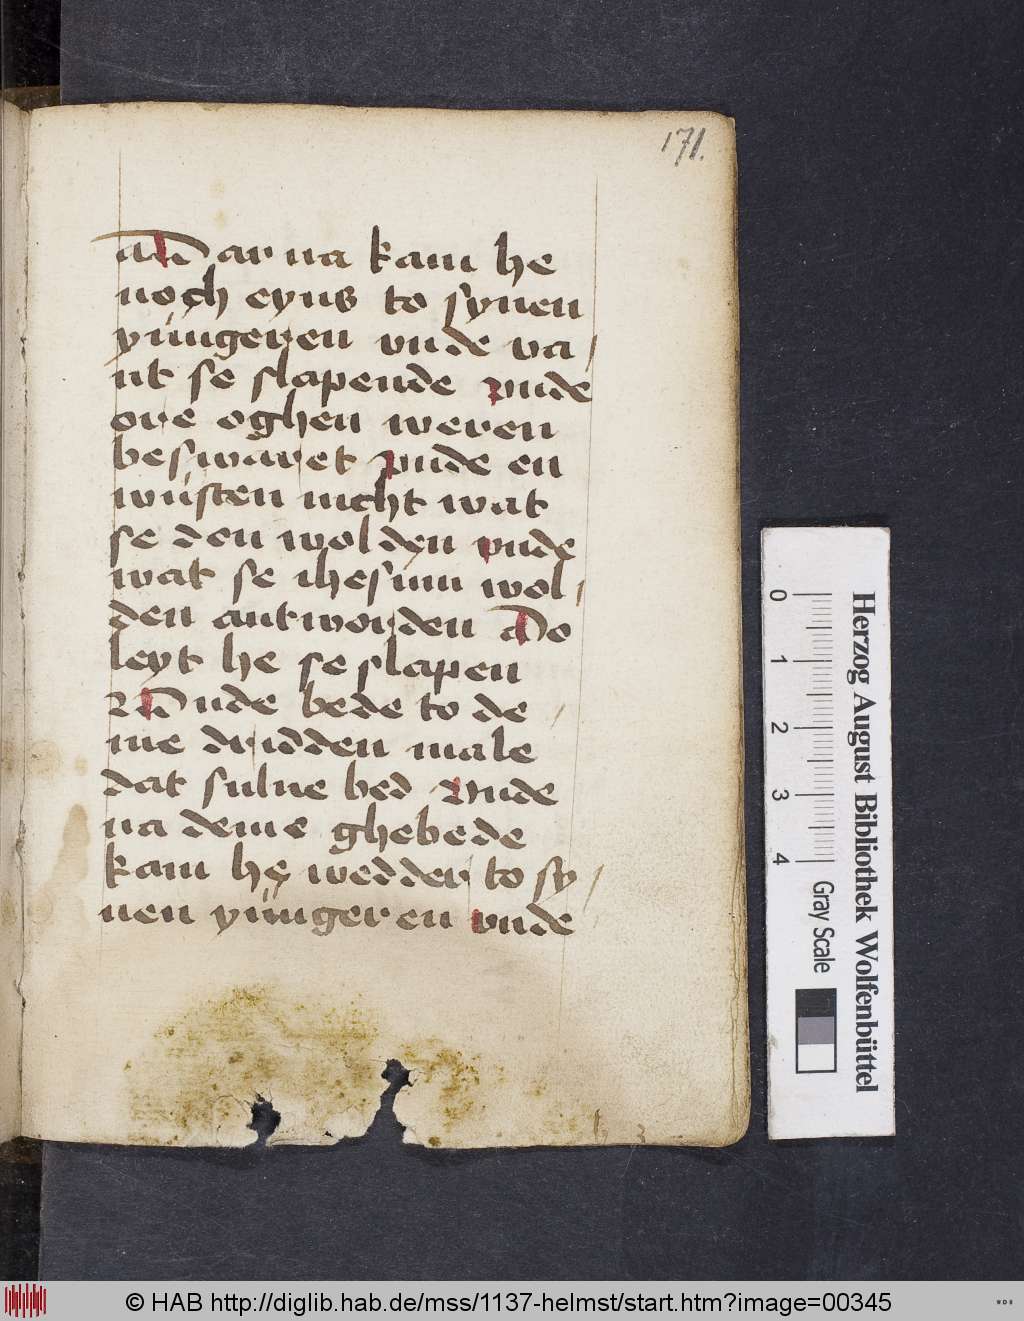 171.
Dar na kam he
noch eyns to synen
yungeren vnde va/
nt se slapende vnde
ore oghen weren
beswaret vnde en
wusten nicht wat
se don wolden vnde
wat se ihesum wol/
den antworden Do
leyt he se slapen
Vnde bede to de/
me drudden male
dat sulue bed Vnde
na deme ghebede
kam he wedder to sy/
nen yungeren vnde
0 1 2 3 4
Gray Scale
Herzog August Bibliothek Wolfenbüttel
© HAB http://diglib.hab.de/mss/1137-helmst/start.htm?image=00345